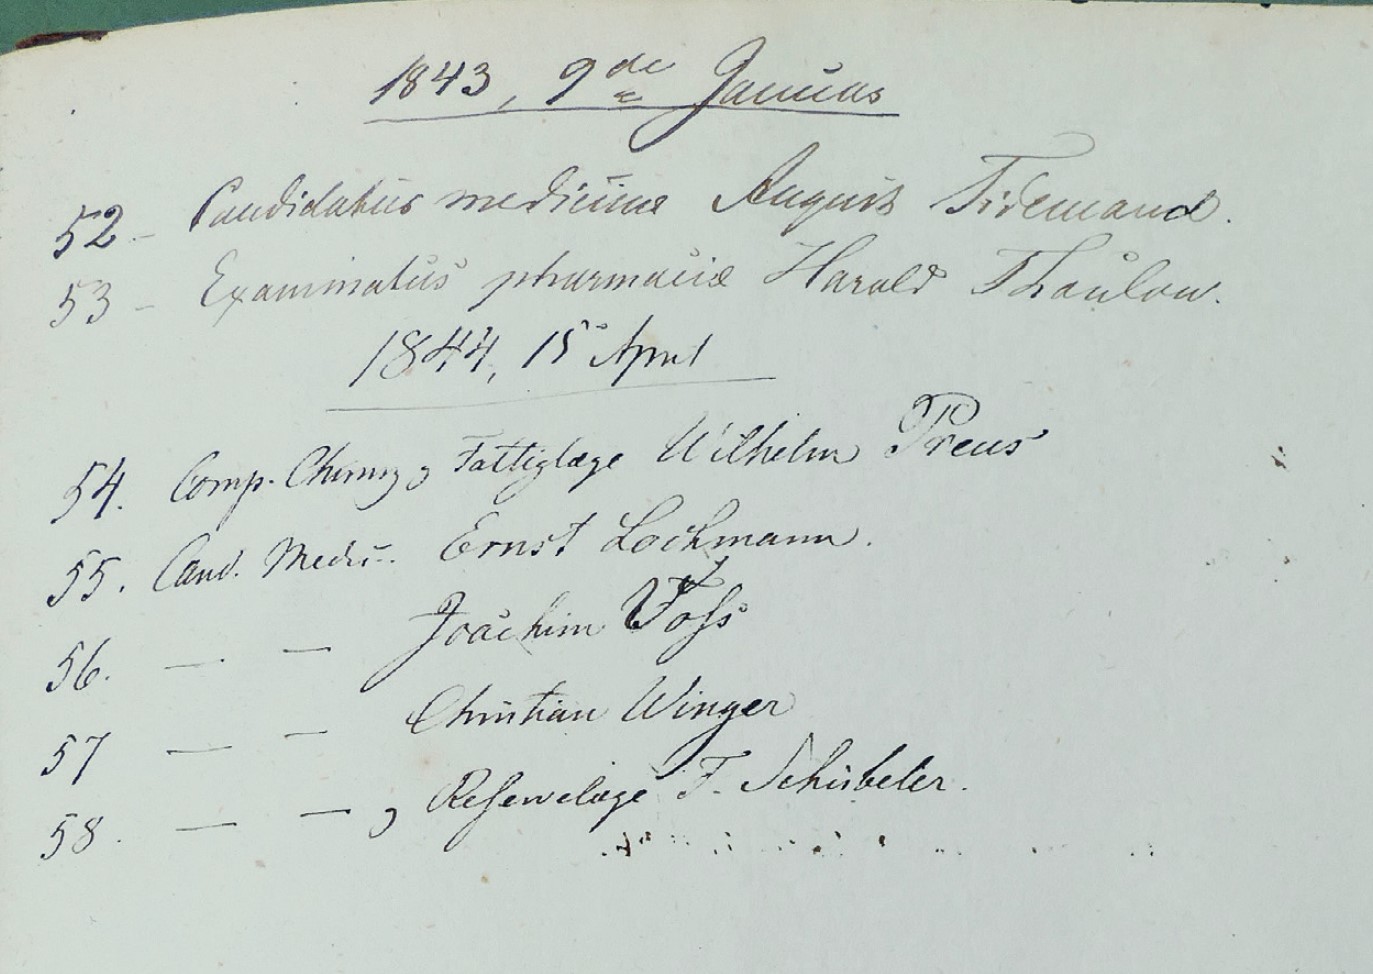 1843, 9de Januar
52 - Candidatus medicinæ August Tidemand.
53 - Examinatus pharmaciæ Harald Thaulow.
1844, 15 April
54. Comp. Chirurg, Fattiglæge Wilhelm Preus
55. Cand. Medic. Ernst Lochmann.
56. — — Joachim Voss
57 — — Christian Winger
58. — — , Reservelæge F. Schübeler.